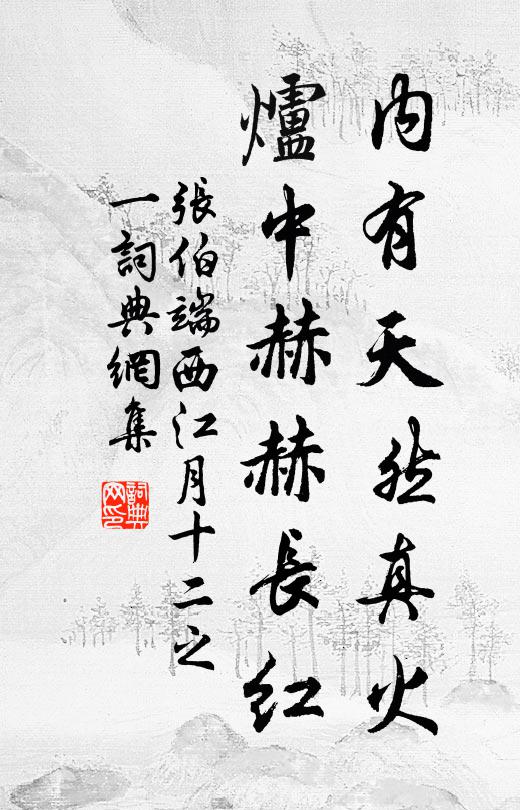 內有天然真火
爐中赫赫長紅
張伯端西江月十二之
一詞典網集
詞典
网印